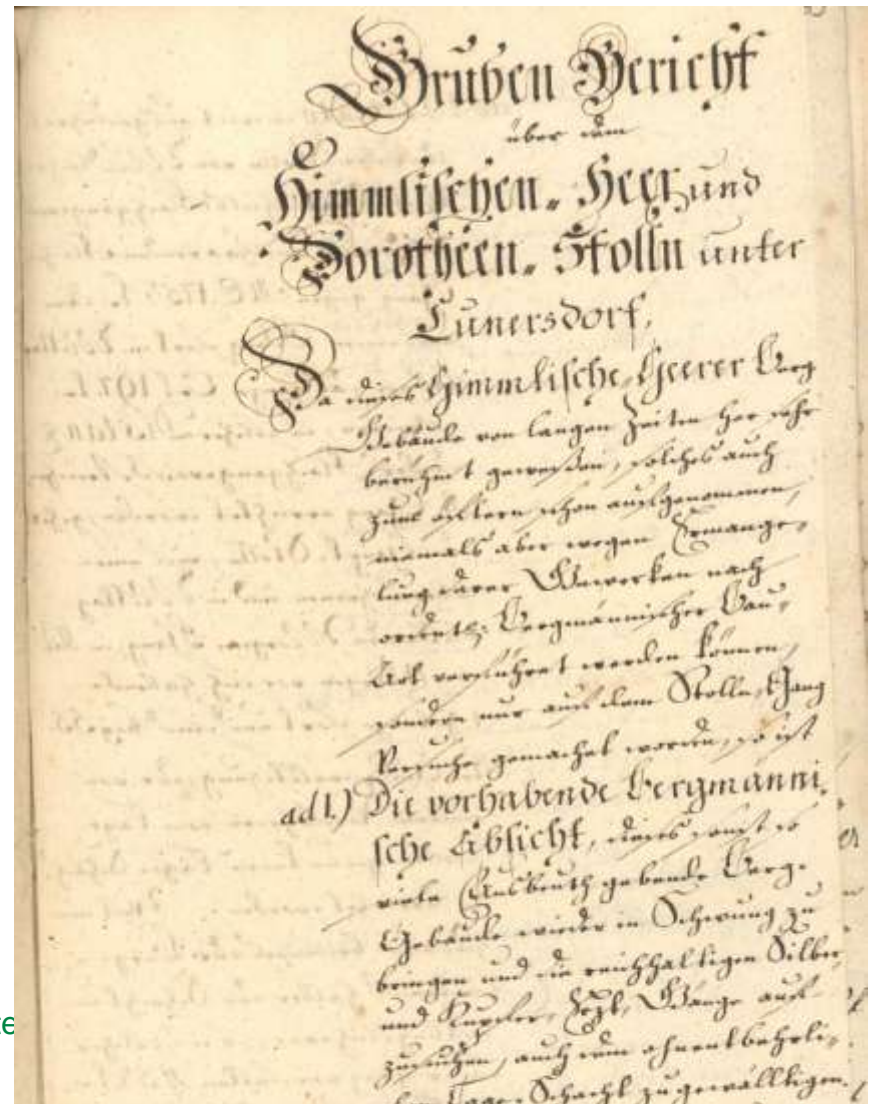 Gruben Bericht
über dem
Himmlischen- Heer, und
Dorotheen- Stolln unter
Cunersdorf,
Da dieses Himmlische Heerer Berg
Gebäude von langen Zeiten her sehr
berühmt geweßen, solches auch
zum öfftern schon aufgenommen,
niemals aber wegen Ermange-
lung derer Gewercken nach
ordentl: Bergmännischer Bau-
Art verführet werden können,
sondern nur auf dem Stolln, Gang
Versuche gemachet worden, so ist
ad 1.) Die vorhabende Bergmänni-
sche Absicht, dieses sonst so
viele Ausbeuth gebende Berg-
Gebäude wieder in Schwung zu
bringen und die reichhaltigen Silber
und Kupfer, Ertzt, Gänge auf-
zusuchen, auch dem ohnentbehrli-
Tage-Schacht zu gewälltigen.